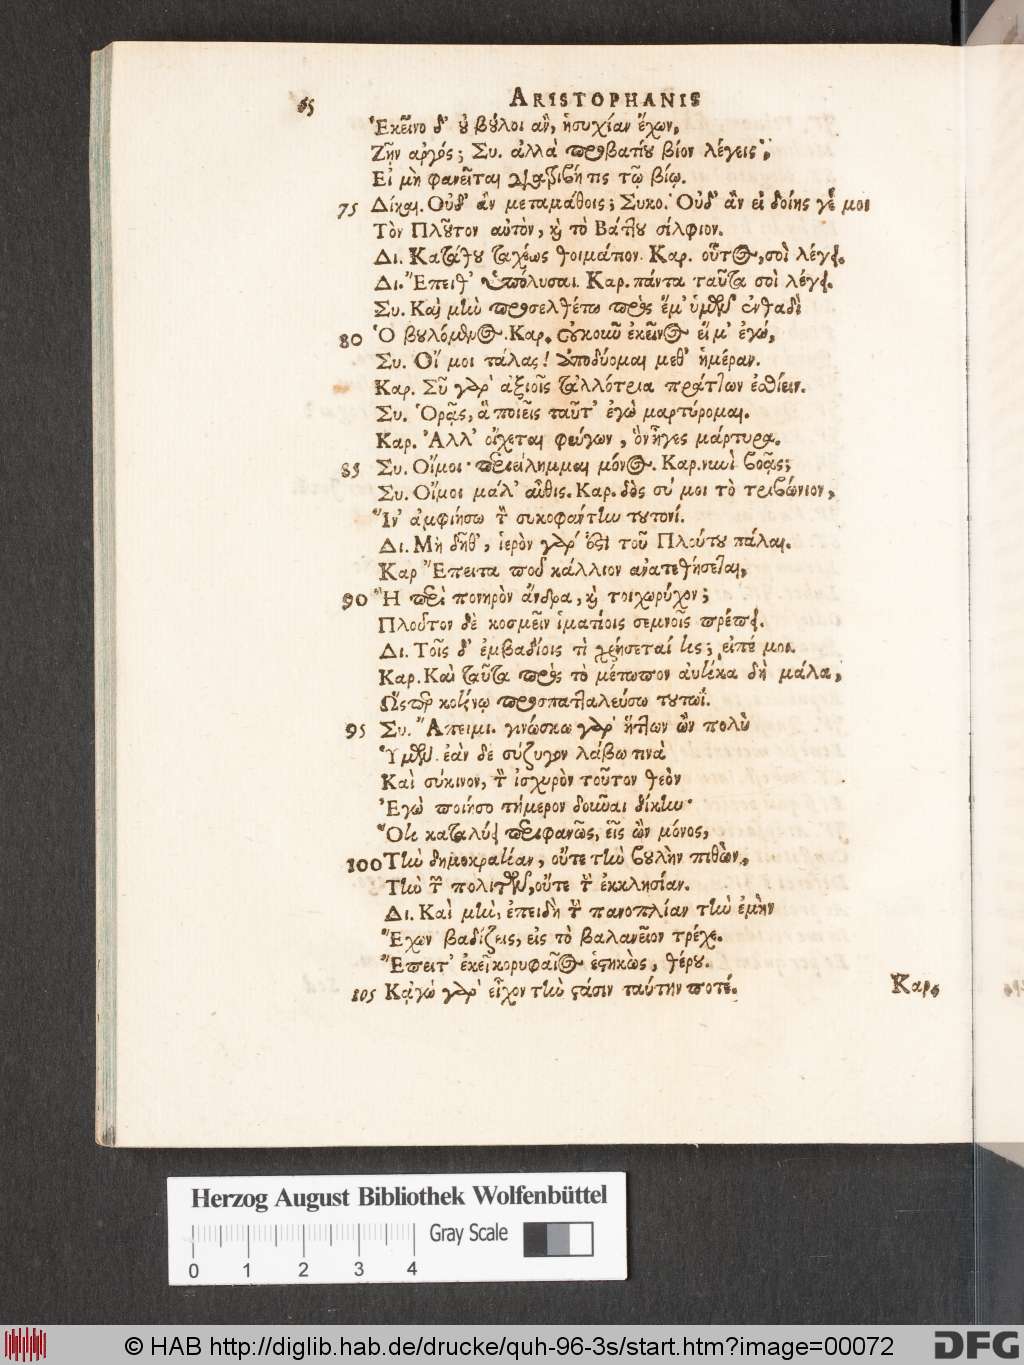 65 ARISTOPHANIS
Ἐκεῖνο δ' οὐ βούλοι ἂν, ἡσυχίαν ἔχων,
Ζῆν ἀργός; Συ. ἀλλὰ προβατίου βίον λέγεις,
Εἰ μὴ φανεῖται διατριβή τις τῷ βίῳ.
75 Δίκαι. Οὐδ' ἂν μεταμάθοις; Συκο. Οὐδ' ἂν εἰ δοίης γέ μοι
Τὸν Πλοῦτον αὐτὸν, καὶ τὸ Βάττου σίλφιον.
Δι. Κατάθου ταχέως θοιμάτιον. Καρ. οὗτος, σοὶ λέγει.
Δι. Ἔπειθ' ὑπόλυσαι. Καρ. πάντα ταῦτα σοὶ λέγει.
Συ. Καὶ μὴν προσελθέτω πρὸς ἔμ' ὑμῶν ἐνθαδὶ
80 Ὁ βουλόμενος. Καρ. οὐκοῦν ἐκεῖνος εἴμ' ἐγώ,
Συ. Οἴ μοι τάλας! ἀποδύομαι μεθ' ἡμέραν.
Καρ. Σὺ γὰρ ἀξιοῖς τἀλλότρια πράττων ἐσθίειν.
Συ. Ὁρᾷς, ἃ ποιεῖς ταῦτ' ἐγὼ μαρτύρομαι.
Καρ. Ἀλλ' οἴχεται φεύγων, ὃν ἦγες μάρτυρα.
85 Συ. Οἴμοι· περιείλημμαι μόνος. Καρ. νυνὶ βοᾷς;
Συ. Οἴμοι μάλ' αὖθις. Καρ. δὸς σύ μοι τὸ τριβώνιον,
Ἵν' ἀμφιήσω τὸν συκοφάντην τουτονί.
Δι. Μὴ δῆθ', ἱερὸν γάρ ἐστι τοῦ Πλούτου πάλαι.
Καρ Ἔπειτα ποῦ κάλλιον ἀνατεθήσεται,
90 Ἢ περὶ πονηρὸν ἄνδρα, καὶ τοιχωρύχον;
Πλοῦτον δὲ κοσμεῖν ἱματίοις σεμνοῖς πρέπει.
Δι. Τοῖς δ' ἐμβαδίοις τὶ χρήσεταί τις; εἰπέ μοι.
Καρ. Καὶ ταῦτα πρὸς τὸ μέτωπον αὐτίκα δὴ μάλα,
Ὥσπερ κοτίνῳ προσπατταλεύσω τουτωΐ.
95 Συ. Ἄπειμι. γινώσκω γὰρ ἥττων ὢν πολὺ
Ὑμῶν. ἐὰν δὲ σύζυγον λάβω τινὰ
Καὶ σύκινον, τὸν ἰσχυρὸν τοῦτον θεὸν
Ἐγὼ ποιήσο τήμερον δοῦναι δίκην·
Ὅτι καταλύει περιφανῶς, εἷς ὢν μόνος,
100 Τὴν δημοκρατίαν, οὔτε τὴν βουλὴν πιθὼν,
Τὴν τῶν πολιτῶν, οὔτε τὴν ἐκκλησίαν.
Δι. Καὶ μὴν, ἐπειδὴ τὴν πανοπλίαν τὴν ἐμὴν
Ἔχων βαδίζεις, εἰς τὸ βαλανεῖον τρέχε.
Ἔπειτ' ἐκεῖ κορυφαῖος ἑστηκὼς, θέρου.
105 Κἀγὼ γὰρ εἶχον τὴν στάσιν ταύτην ποτέ.
Καρ.
Herzog August Bibliothek Wolfenbüttel
Gray Scale
0 1 2 3 4
© HAB http://diglib.hab.de/drucke/quh-96-3s/start.htm?image=00072
DFG